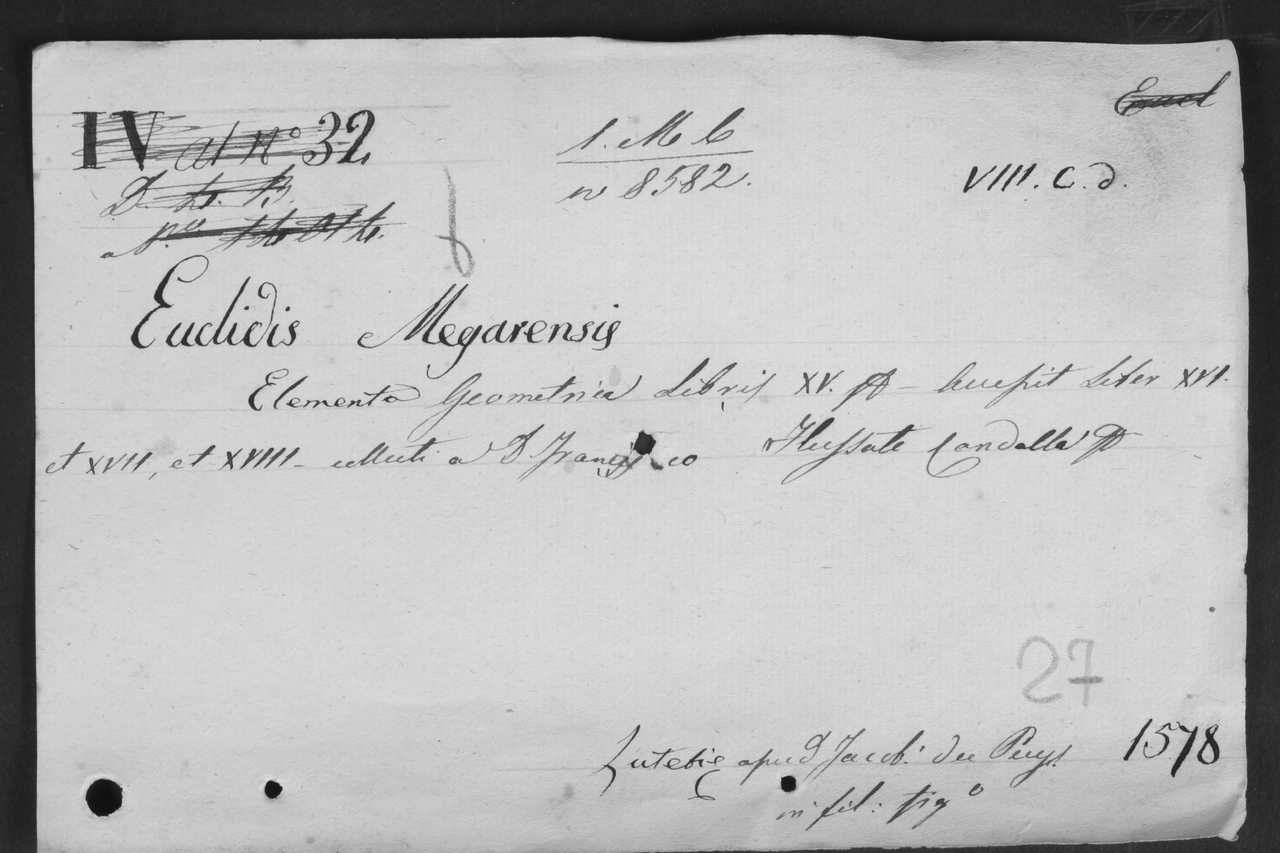 Eucl
IV al N° 32
1. M C
n 8582.
VIII. C. d.
Euclidis Megarensis
Elementa Geometrica Libris XV. Accessit Liber XVI.
et XVII, et XVIII a D Francisco Flussate Candalla
27
Lutetiæ apud Jacob: du Puys 1578
in fol: fig°